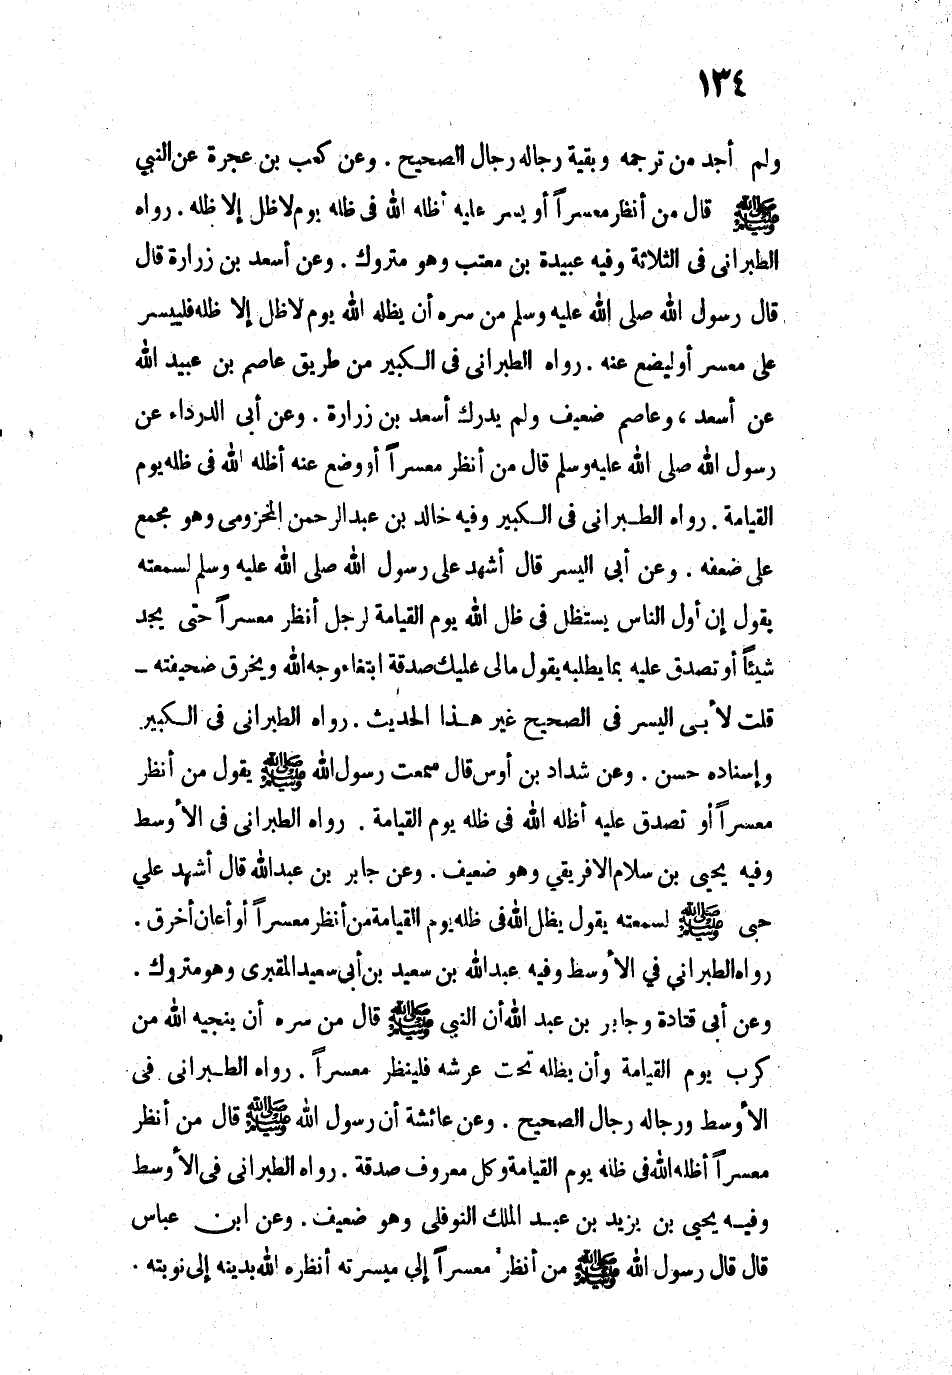 ١٣٤
ولم أجد من ترجمه وبقية رجاله رجال الصحيح . وعن كعب بن عجرة عن النبي
ﷺ قال من أنظر معسراً أو يسر عليه أظله الله فى ظله يوم لاظل إلا ظله . رواه
الطبرانى فى الثلاثة وفيه عبيدة بن معتب وهو متروك . وعن أسعد بن زرارة قال
قال رسول الله صلى الله عليه وسلم من سره أن يظله الله يوم لاظل إلا ظله فلييسر
على معسر أو ليضع عنه . رواه الطبرانى فى الكبير من طريق عاصم بن عبيد الله
عن أسعد ، وعاصم ضعيف ولم يدرك أسعد بن زرارة . وعن أبى الدرداء عن
رسول الله صلى الله عليه وسلم قال من أنظر معسراً أو وضع عنه أظله الله فى ظله يوم
القيامة . رواه الطبرانى فى الكبير وفيه خالد بن عبد الرحمن المخزومى وهو مجمع
على ضعفه . وعن أبى اليسر قال أشهد على رسول الله صلى الله عليه وسلم لسمعته
يقول إن أول الناس يستظل فى ظل الله يوم القيامة لرجل أنظر معسراً حتى يجد
شيئاً أو تصدق عليه بما يطلبه يقول مالى عليك صدقة ابتغاء وجه الله ويخرق صحيفته ـ
قلت لأبى اليسر فى الصحيح غير هذا الحديث . رواه الطبرانى فى الكبير
وإسناده حسن . وعن شداد بن أوس قال سمعت رسول الله ﷺ يقول من أنظر
معسراً أو تصدق عليه أظله الله فى ظله يوم القيامة . رواه الطبرانى فى الأوسط
وفيه يحيى بن سلام الافريقي وهو ضعيف . وعن جابر بن عبدالله قال أشهد علي
حبى ﷺ لسمعته يقول يظل الله فى ظله يوم القيامة من أنظر معسراً أو أعان أخرق .
رواه الطبراني في الأوسط وفيه عبدالله بن سعيد بن أبى سعيد المقبرى وهو متروك .
وعن أبى قتادة وجابر بن عبد الله أن النبي ﷺ قال من سره أن ينجيه الله من
كرب يوم القيامة وأن يظله تحت عرشه فلينظر معسراً . رواه الطبرانى فى
الأوسط ورجاله رجال الصحيح . وعن عائشة أن رسول الله ﷺ قال من أنظر
معسراً أظله الله فى ظله يوم القيامة وكل معروف صدقة . رواه الطبرانى فى الأوسط
وفيه يحيى بن يزيد بن عبد الملك النوفلى وهو ضعيف . وعن ابن عباس
قال قال رسول الله ﷺ من أنظر معسراً إلي ميسرته أنظره الله بدينه إلى نوبته .